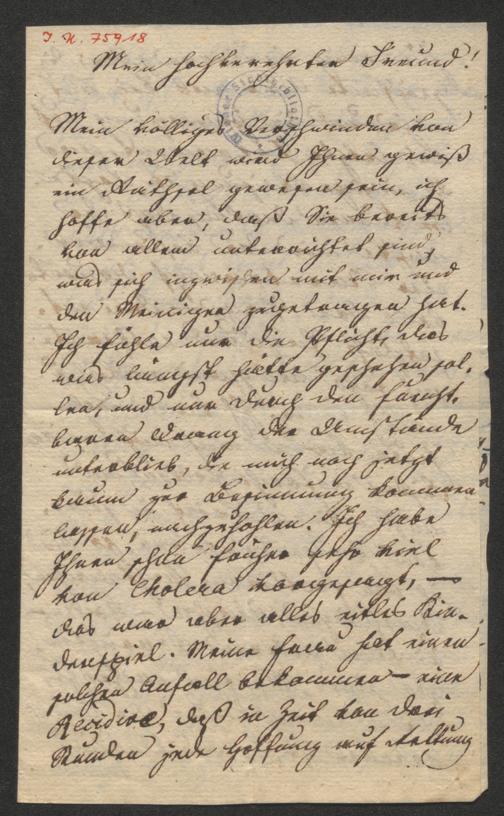 J. N. 75918
Mein hochverehrter Freund!
Mein völliges Verschwinden von
dieser Welt wird Ihnen gewiß
ein Räthsel gewesen sein, ich
hoffe aber, daß Sie bereits
von allem unterrichtet sind,
was sich inzwischen mit mir und
den Meinigen zugetragen hat.
Ich fühle nur die Pflicht, das
was längst hätte geschehen sol-
len, und nur durch den furcht-
baren Drang der Umstände
unterblieb, die mich noch jetzt
kaum zur Besinnung kommen
lassen, nachzuhohlen. Ich habe
Ihnen schon früher sehr viel
von Cholera vorgesagt, —
das war aber alles eitles Kin-
derspiel. Meine Frau hat einen
solchen Anfall bekommen — eine
Recidive, daß in Zeit von drei
Stunden jede Hoffnung auf Rettung